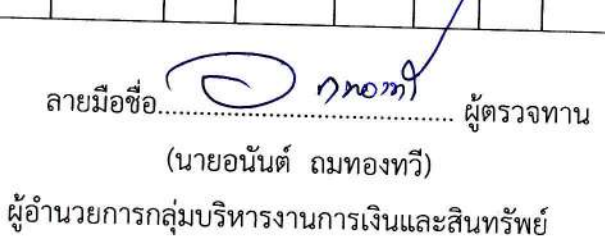 ลายมือชื่อ........................................... ผู้ตรวจทาน
(นายอนันต์ ถมทองทวี)
ผู้อำนวยการกลุ่มบริหารงานการเงินและสินทรัพย์